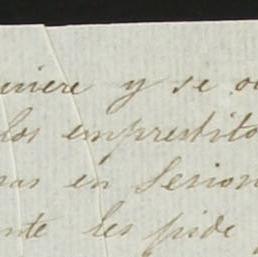 uiere y se o
los emprestito
nas en Sesion
nte les pide